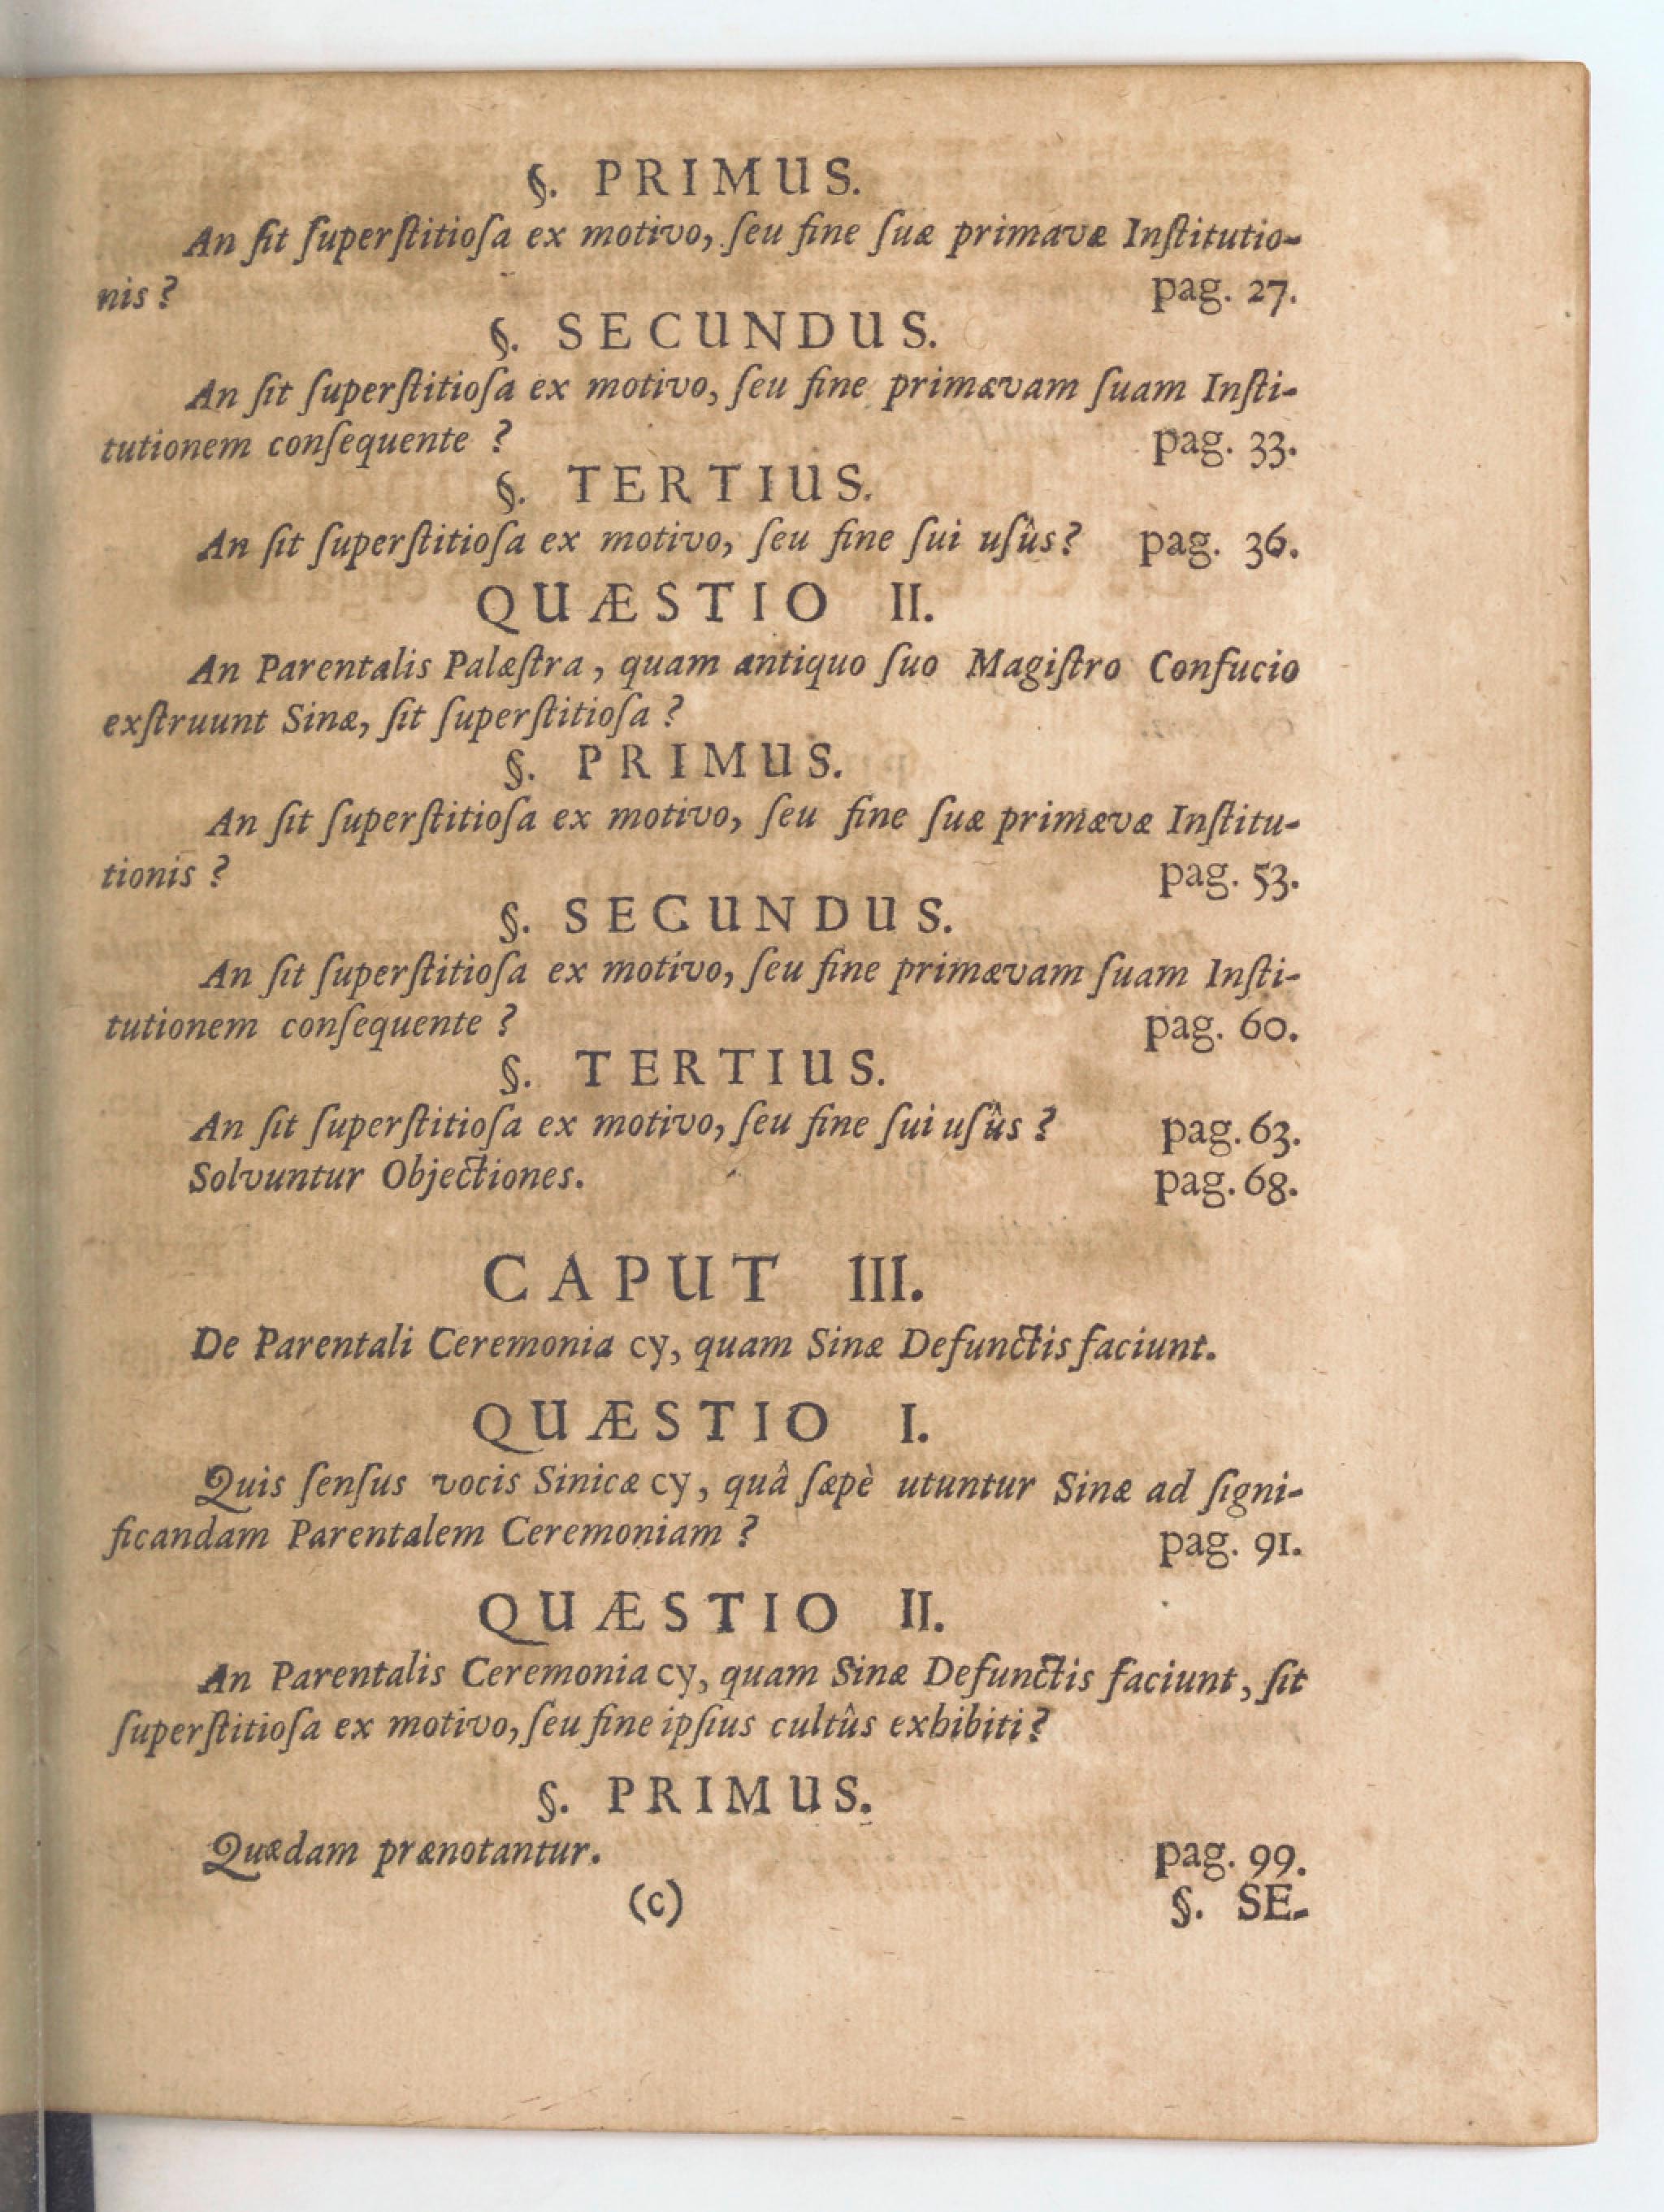 §. PRIMUS.
An ſit ſuperſtitioſa ex motivo, ſeu fine ſuæ primævæ Inſtitutio-
nis? pag. 27.
§. SECUNDUS.
An ſit ſuperſtitioſa ex motivo, ſeu fine primævam ſuam Inſti-
tutionem conſequente? pag. 33.
§. TERTIUS.
An ſit ſuperſtitioſa ex motivo, ſeu fine ſui uſûs? pag. 36.
QUÆSTIO II.
An Parentalis Palæſtra, quam antiquo ſuo Magiſtro Confucio
exſtruunt Sinæ, ſit ſuperſtitioſa?
§. PRIMUS.
An ſit ſuperſtitioſa ex motivo, ſeu fine ſuæ primævæ Inſtitu-
tionis? pag. 53.
§. SECUNDUS.
An ſit ſuperſtitioſa ex motivo, ſeu fine primævam ſuam Inſti-
tutionem conſequente? pag. 60.
§. TERTIUS.
An ſit ſuperſtitioſa ex motivo, ſeu fine ſui uſûs? pag. 63.
Solvuntur Objectiones. pag. 68.
CAPUT III.
De Parentali Ceremonia cy, quam Sinæ Defunctis faciunt.
QUÆSTIO I.
Quis ſenſus vocis Sinicæ cy, quâ ſæpè utuntur Sinæ ad ſigni-
ficandam Parentalem Ceremoniam? pag. 91.
QUÆSTIO II.
An Parentalis Ceremonia cy, quam Sinæ Defunctis faciunt, ſit
ſuperſtitioſa ex motivo, ſeu fine ipſius cultûs exhibiti?
§. PRIMUS.
Quædam prænotantur. pag. 99.
(c) §. SE-